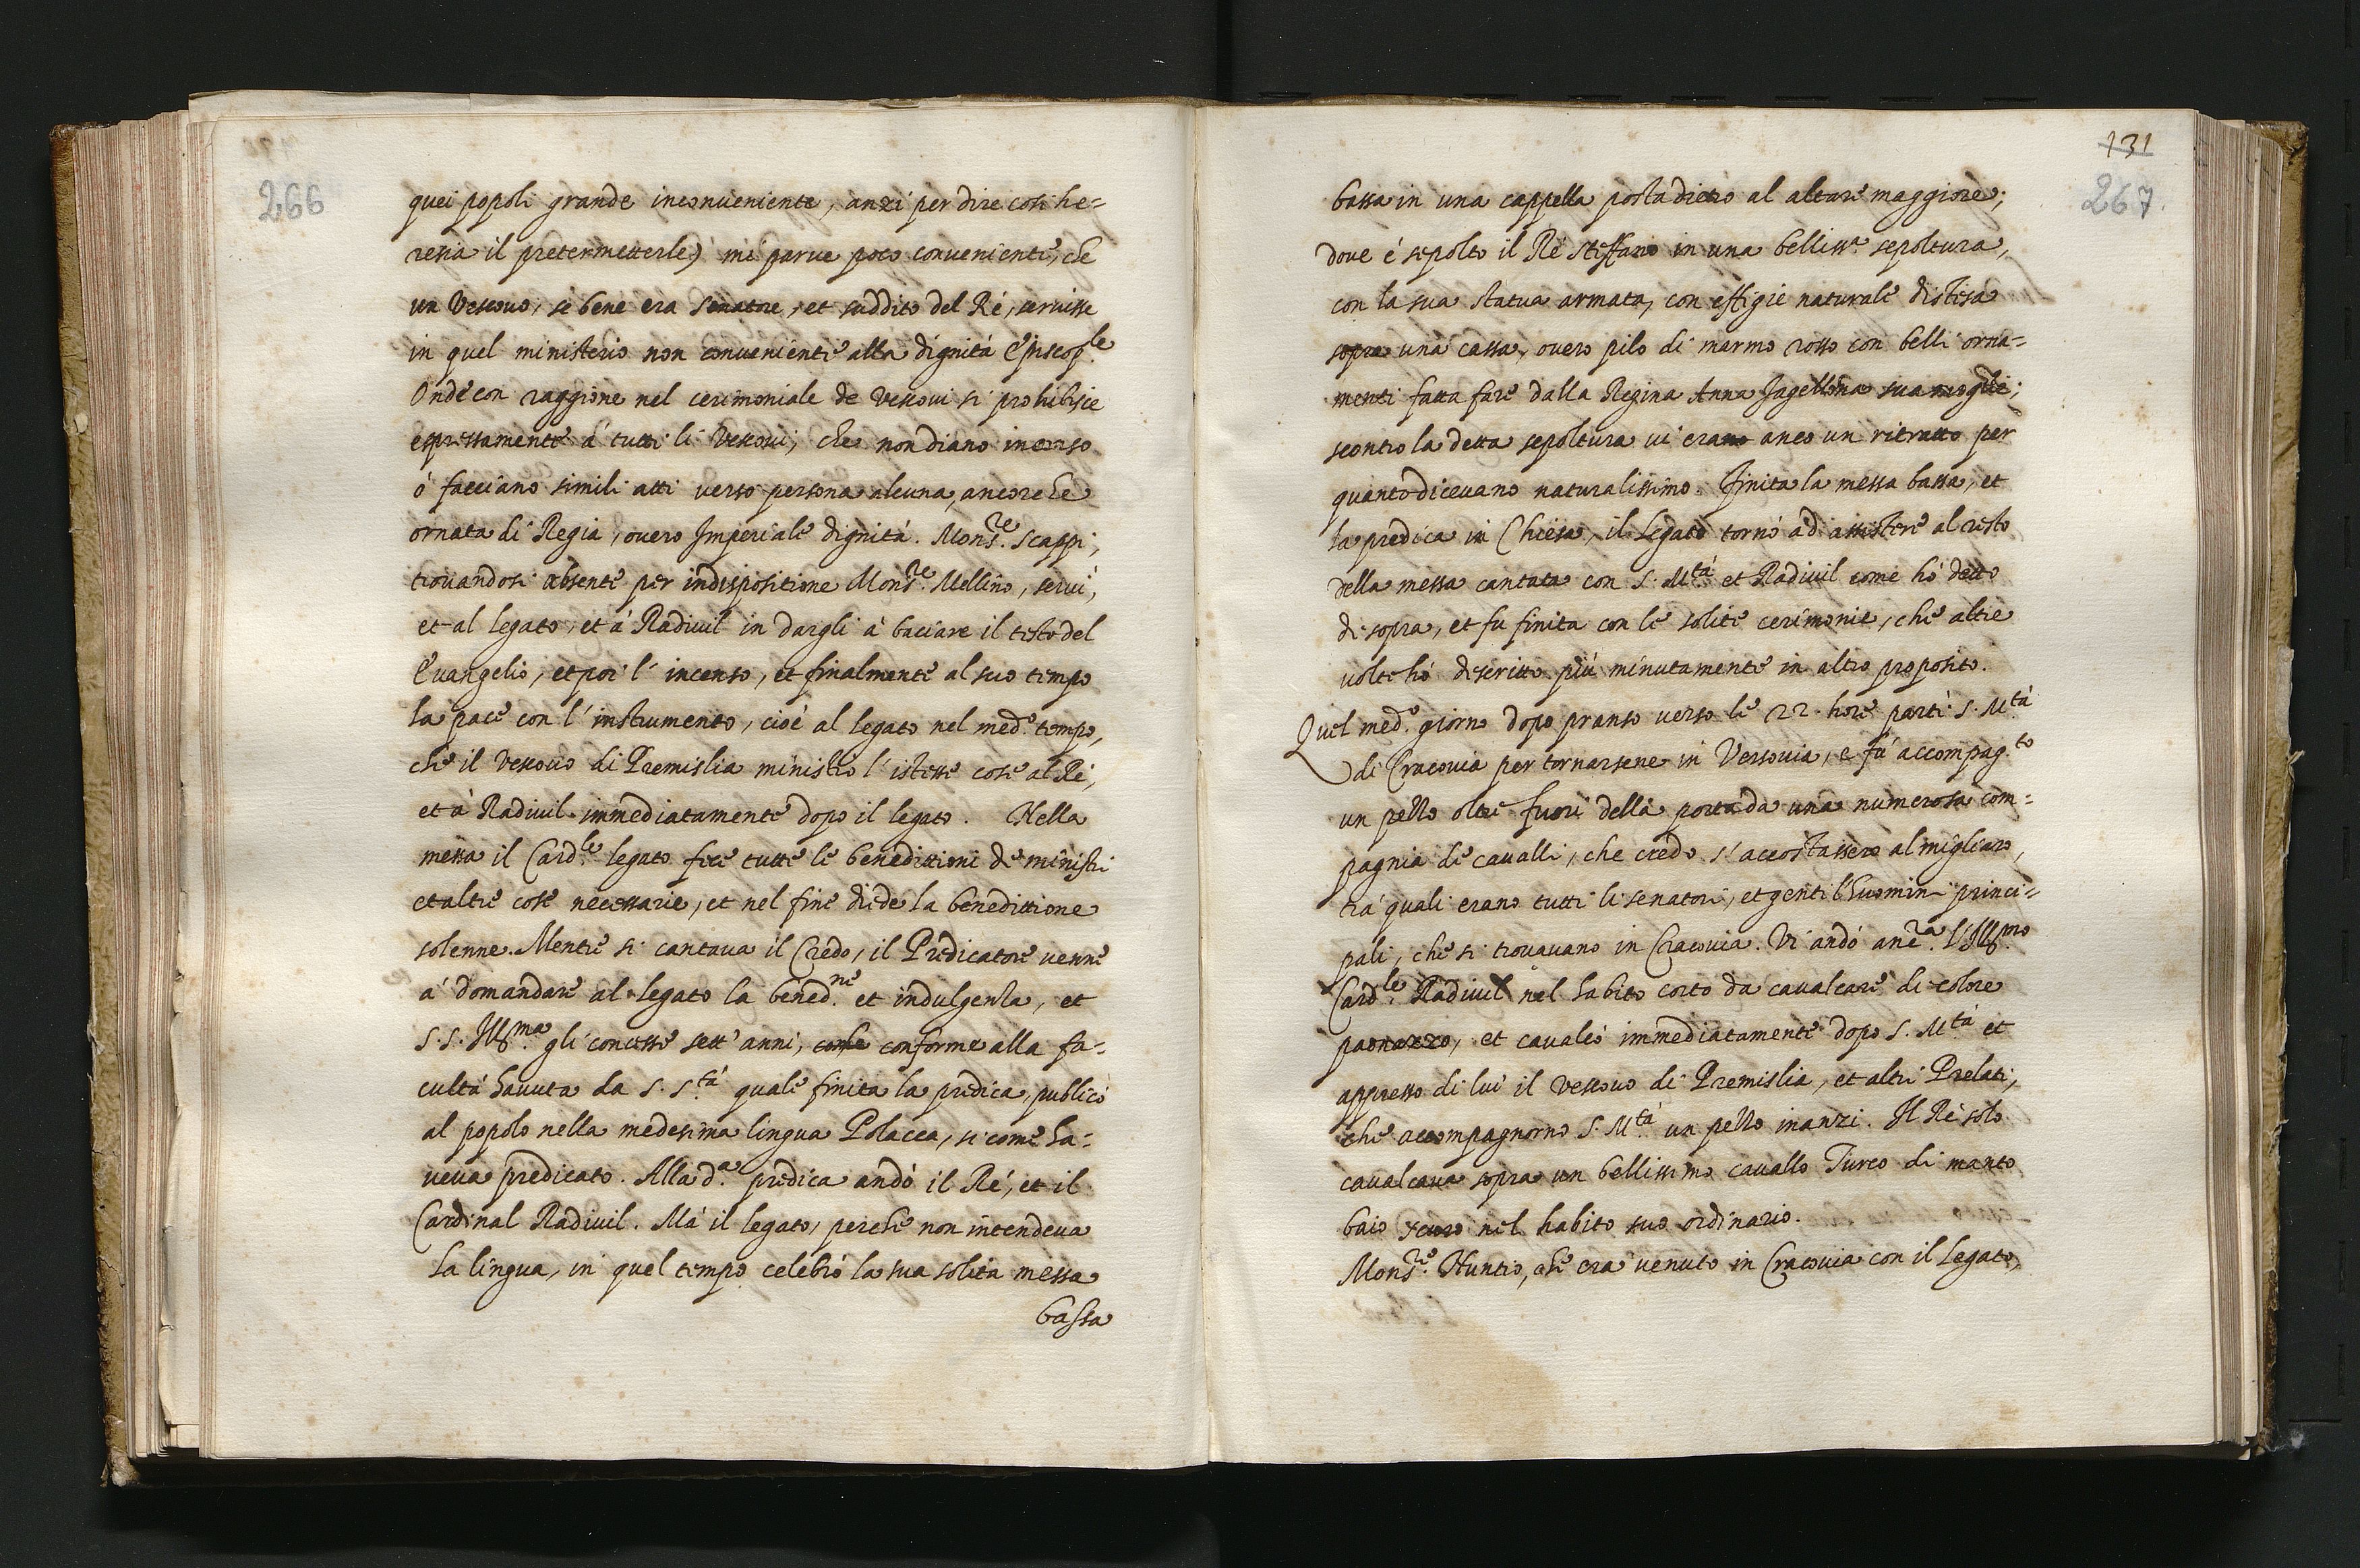 266
quei popoli grande inconueniente, anzi per dire cosi he=
resia il pretermetterle) mi parue poco conueniente, che
un Vescouo, se bene era senatore, et suddito del Ré, seruisse
in quel ministerio non conueniente alla dignità Episcop.le
Onde con raggione nel cerimoniale de vescoui si prohibisce
espressamente à tutti li Vescoui, che non diano incenso
ò facciano simili atti verso persona alcuna, ancorche
ornata di Regia, ouero Imperiale dignità. Mons.re Scappi,
trouandosi absente per indispositione Mons.re Mellino, seruì,
et al legato, et à Radiuil in dargli à bacciare il testo del
Euangelio, et poi l'incenso, et finalmente al suo tempo
la pace con l'instrumento, cioè al legato nel med.o tempo,
che il vescouo di Premislia ministrò l'istesse cose al Ré,
et à Radiuil immediatamente dopo il legato. Nella
messa il Card.le legato fece tutte le benedittioni de ministri
et altre cose necessarie, et nel fine diede la benedittione
solenne. Mentre si cantaua il Credo, il Predicatore venne
à domandare al legato la bened.ne et indulgenza, et
S. S. Ill.ma gli concesse sett'anni, conforme alla fa=
cultà hauuta da S. S.tà quale finita la predica, publicò
al popolo nella medesima lingua Polacca, si come ha=
ueua predicato. Alla d.a predica andò il Ré, et il
Cardinal Radiuil. Mà il legato, perche non intendeua
la lingua, in quel tempo celebrò la sua solita messa
bassa
131
267.
bassa in una cappella posta dietro al altare maggiore;
doue è sepolto il Ré Steffano in una belliss.a sepoltura,
con la sua statua armata, con effigie naturale distesa
sopra una cassa, ouero pilo di marmo rosso con belli orna=
menti fatta fare dalla Regina Anna Jagellona sua moglie;
scontro la detta sepoltura ui erano anco un ritratto per
quanto diceuano naturalissimo. Finita la messa bassa, et
la predica in Chiesa, il Legato tornò ad assistere al resto
della messa cantata con S. M.tà et Radiuil come hò detto
di sopra, et fu finita con le solite cerimonie, che altre
uolte hò descritto più minutamente in altro proposito.
Quel med.o giorno dopo pranso verso le 22 hore partì S. M.tà
di Cracouia per tornarsene in Versouia, e fù accompag.to
un pezzo oltre fuori della porta da una numerosa com=
pagnia di caualli, che credo s'accostassero al migliaro,
trà quali erano tutti li senatori, et gentilhuomini princi=
pali, che si trouauano in Cracouia. Vi andò anc.ra l'Ill.mo
Card.le Radiuil nel habito corto da caualcare di colore
paonazzo, et caualcò immediatamente dopo S. M.tà et
appresso di lui il vescouo di Premislia, et altri Prelati,
che accompagnorno S. M.tà un pezzo inanzi. Il Ré solo
caualcaua sopra un bellissimo cauallo Turco di manto
baio scuro nel habito suo ordinario.
Mons.re Nuntio, che era venuto in Cracouia con il Legato,